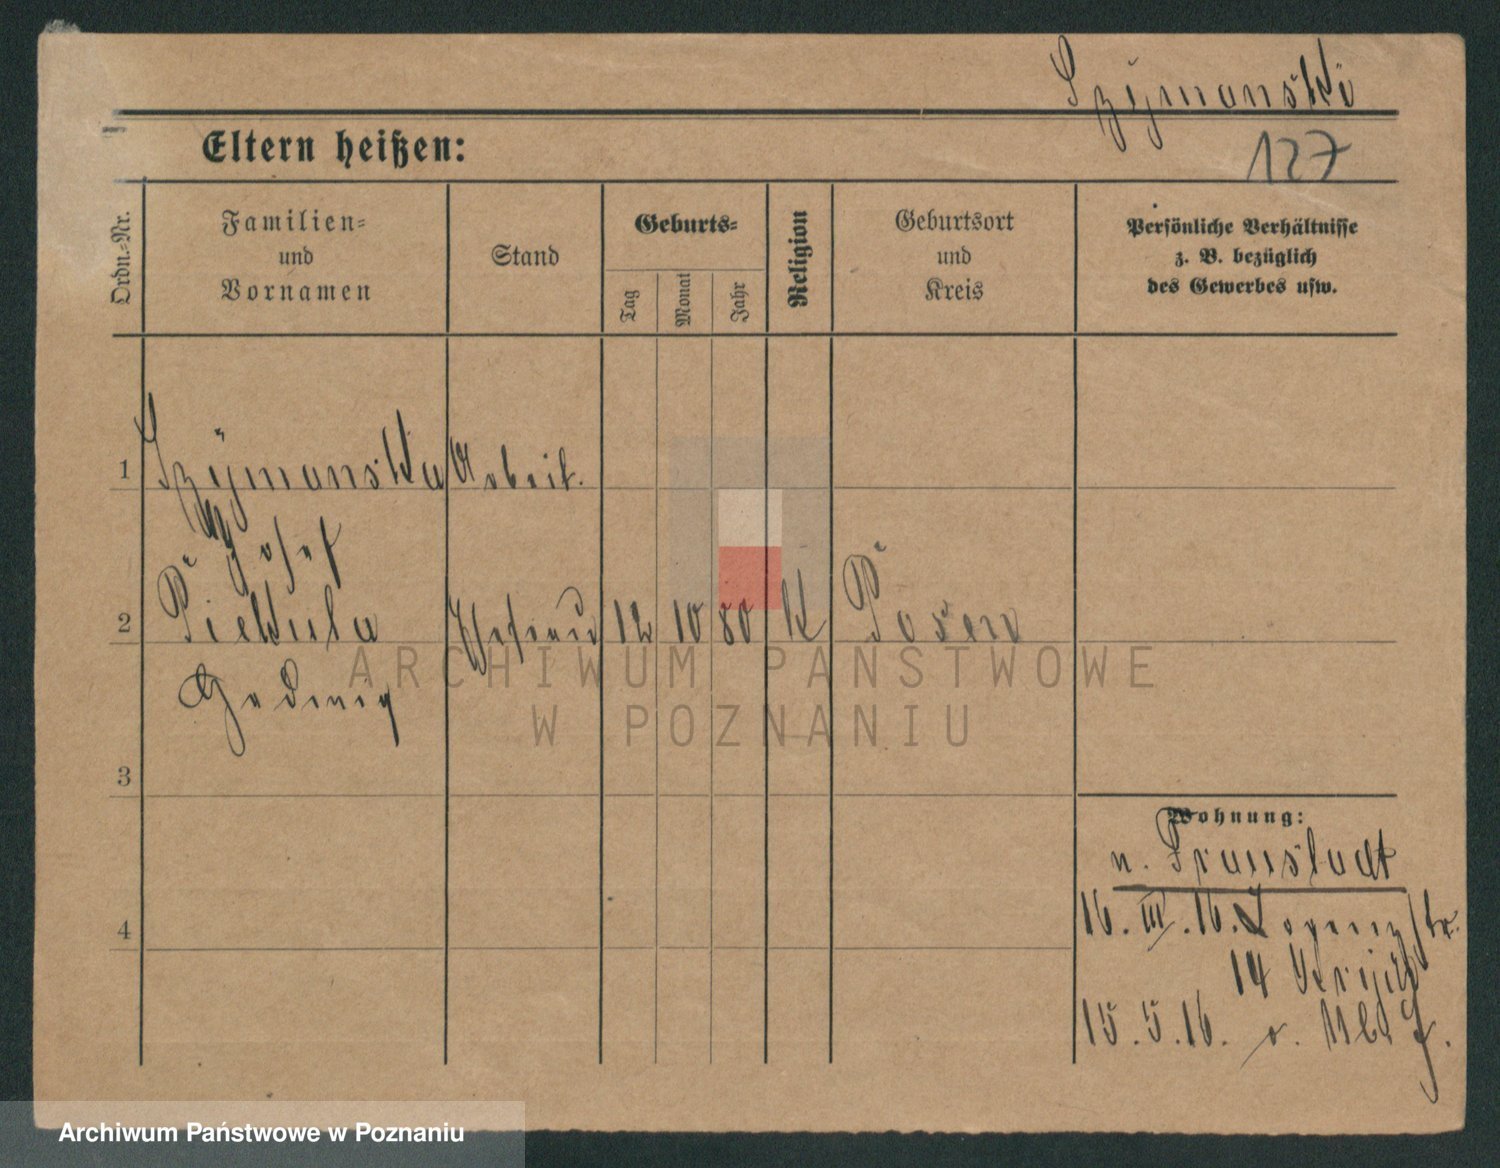 Szymanski
127
Eltern heißen:
Ordn.=Nr.
Familien=
und
Vornamen
Stand
Geburts=
Tag
Monat
Jahr
Religion
Geburtsort
und
Kreis
Persönliche Verhältnisse
z. B. bezüglich
des Gewerbes usw.
1 Szymanska Arbeit.
Josef
2 Piekula Ehefrau 12 10 80 K Posen
Hedwig
3
4
Wohnung:
n. Fraustadt
16. III. 16. str.
14
15. 5. 16. v.
ARCHIWUM PAŃSTWOWE
W POZNANIU
Archiwum Państwowe w Poznaniu